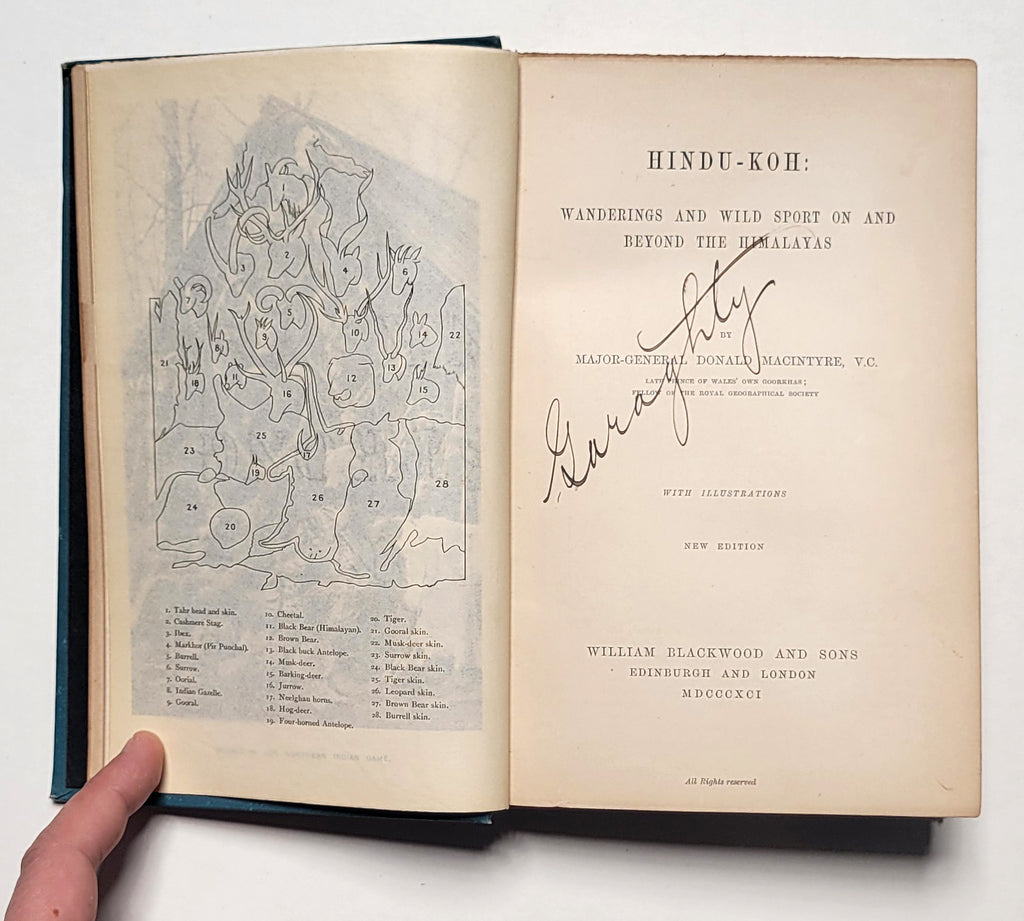 1
2
3
4
6
7
5
9
10
14
22
8
21
13
18
11
12
15
16
25
23
17
19
28
24
26
27
20
1. Tahr head and skin.
2. Cashmere Stag.
3. Ibex.
4. Markhor (Pir Punchal).
5. Burrell.
6. Surrow.
7. Oorial.
8. Indian Gazelle.
9. Gooral.
10. Cheetal.
11. Black Bear (Himalayan).
12. Brown Bear.
13. Black buck Antelope.
14. Musk-deer.
15. Barking-deer.
16. Jurrow.
17. Neelghau horns.
18. Hog-deer.
19. Four-horned Antelope.
20. Tiger.
21. Gooral skin.
22. Musk-deer skin.
23. Surrow skin.
24. Black Bear skin.
25. Tiger skin.
26. Leopard skin.
27. Brown Bear skin.
28. Burrell skin.
NORTHERN INDIAN GAME.
HINDU-KOH:
WANDERINGS AND WILD SPORT ON AND
BEYOND THE HIMALAYAS
BY
MAJOR-GENERAL DONALD MACINTYRE, V.C.
LATE PRINCE OF WALES' OWN GOORKHAS;
FELLOW OF THE ROYAL GEOGRAPHICAL SOCIETY
Garaghty
WITH ILLUSTRATIONS
NEW EDITION
WILLIAM BLACKWOOD AND SONS
EDINBURGH AND LONDON
MDCCCXCI
All Rights reserved